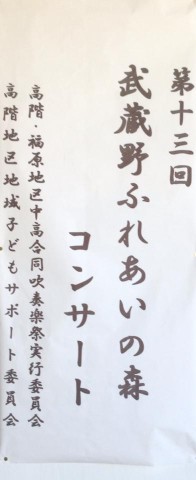 第十三回
武蔵野ふれあいの森
コンサート
高階・福原地区中高合同吹奏楽祭実行委員会
高階地区地域子どもサポート委員会